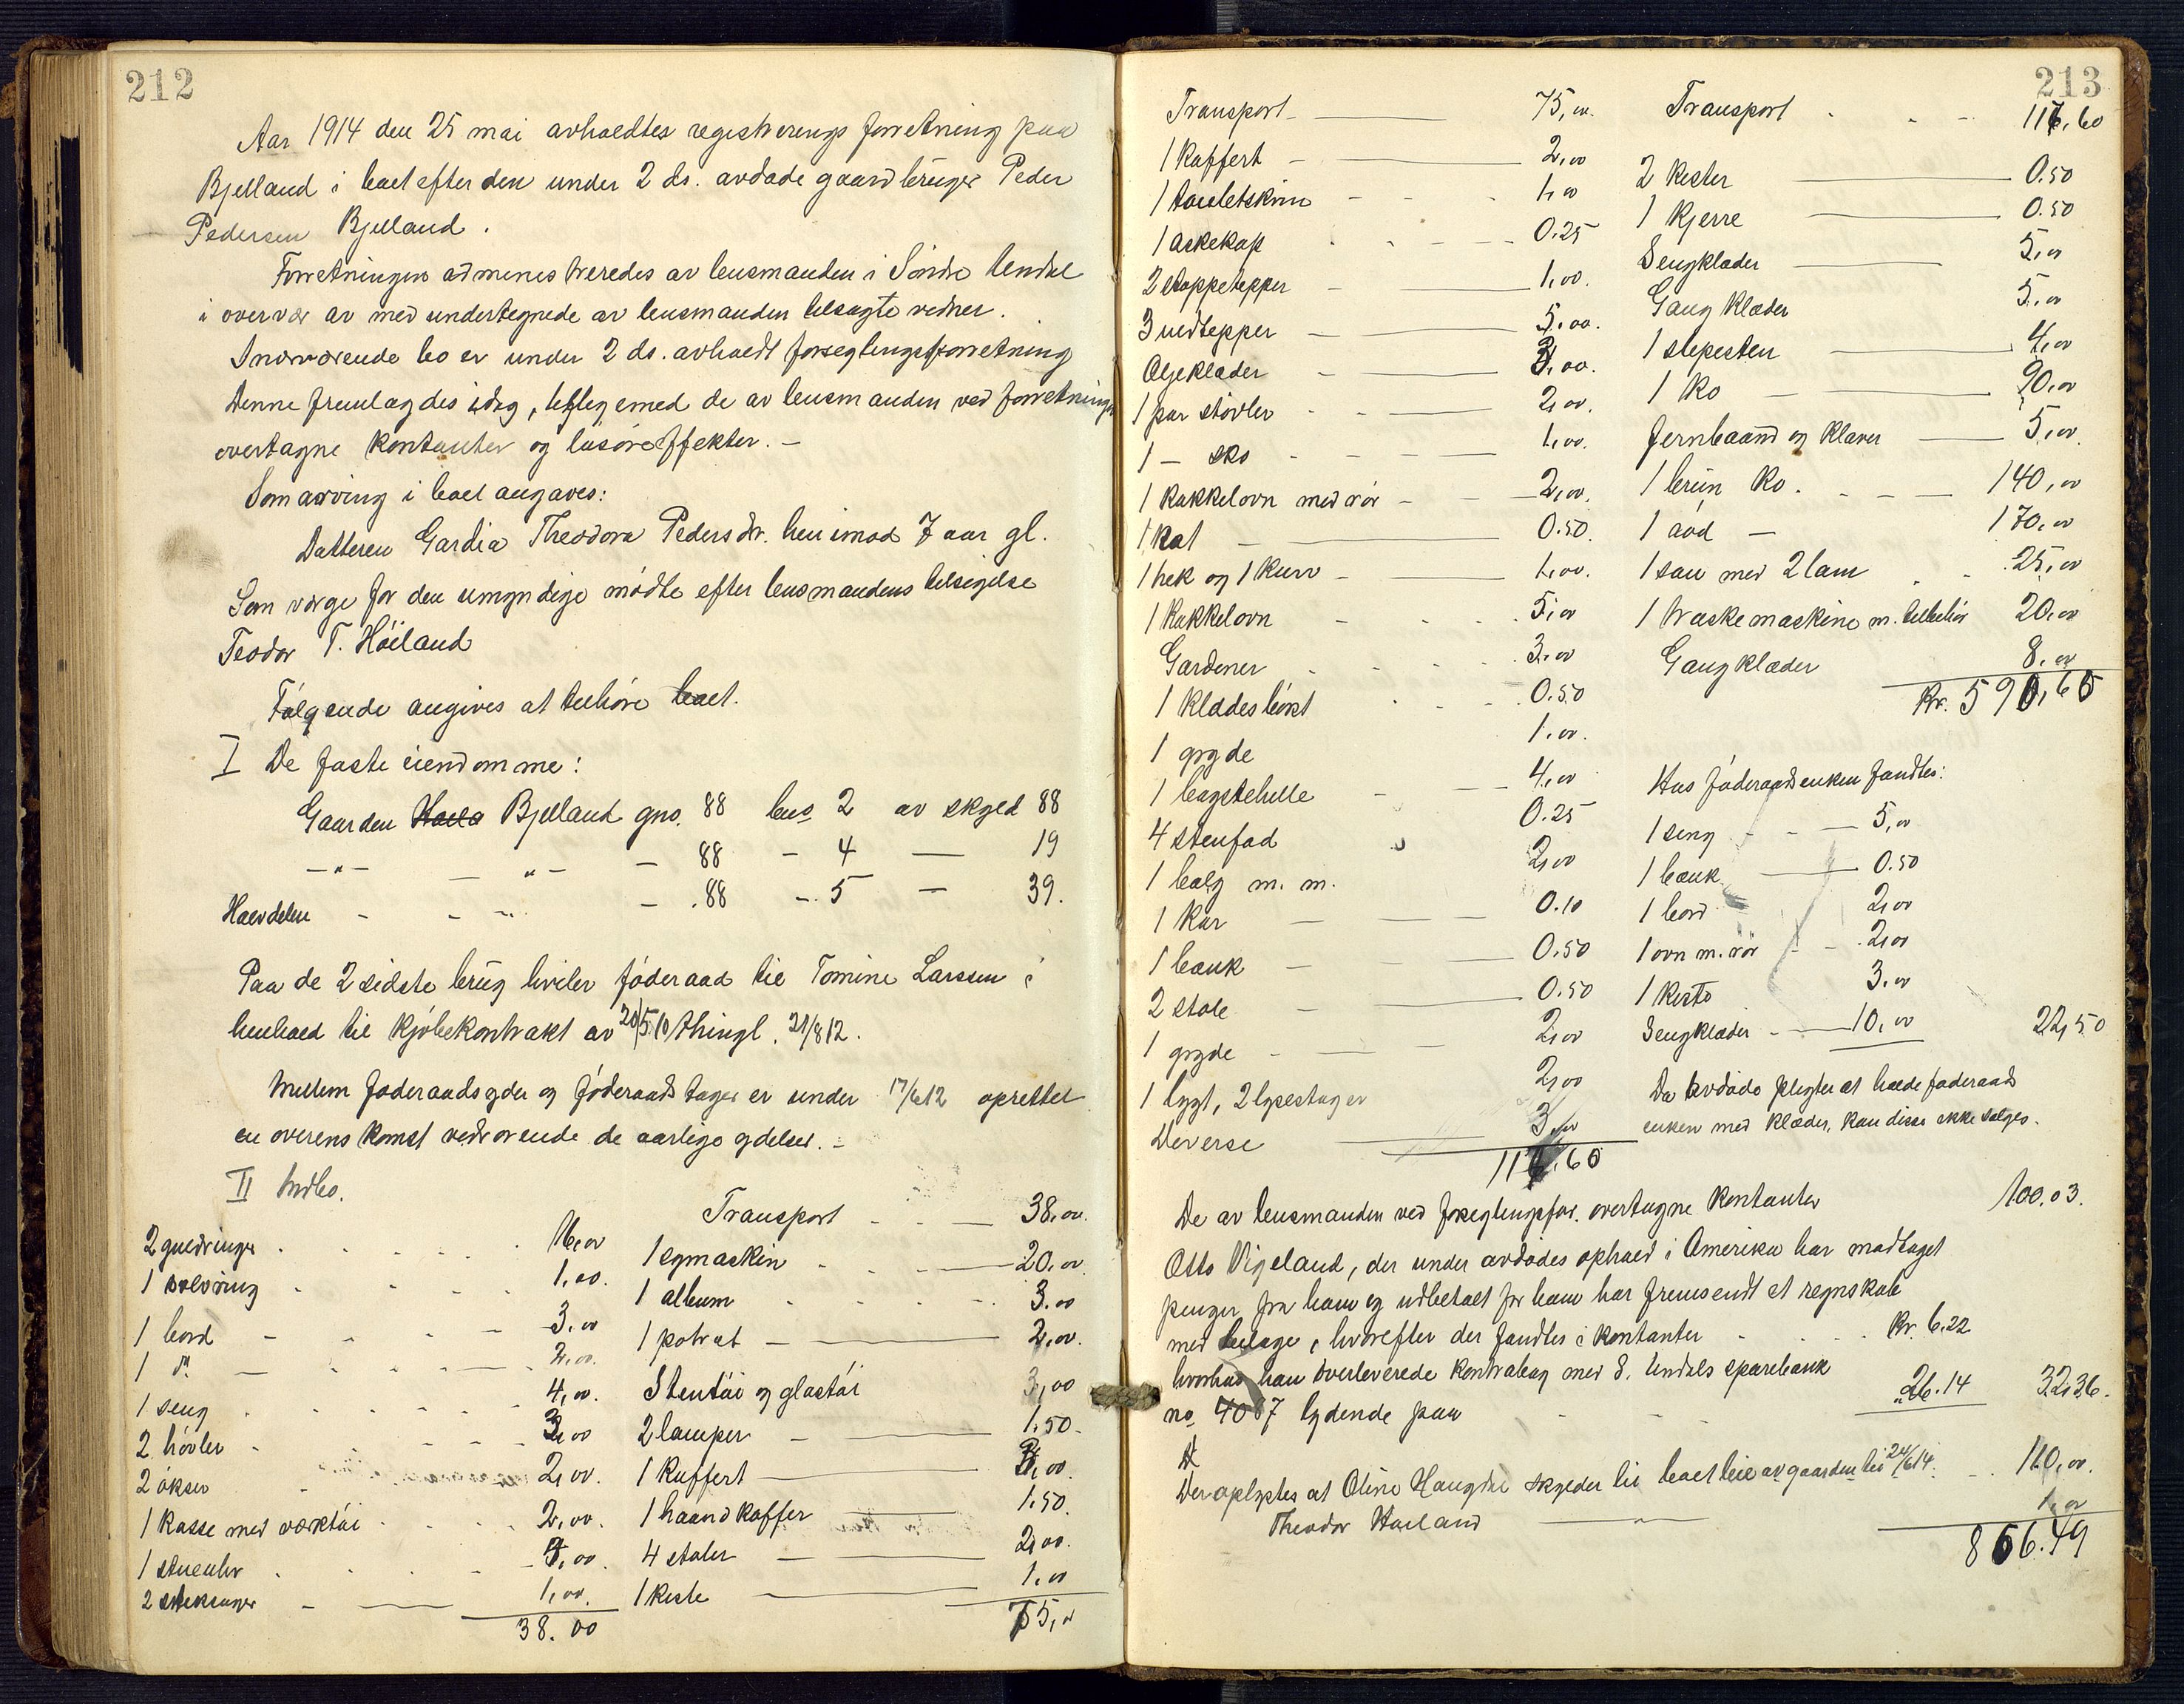 212
Aar 1914 den 25 mai avholdtes registrerings forretning paa
Bjelland i boet efter den under 2 ds. avdøde gaardbruger Peder
Pedersen Bjelland.
Forretningen administreredes av lensmanden i Søndre Undal
i overvær av med undertegnede av lensmanden tilsagte vidner.
I nærværende bo er under 2 ds. avholdt forseglingsforretning
Denne fremlagdes idag, tillegemed de av lensmanden ved forretningen
overtagne kontanter og løsøreeffekter. -
Som arving i boet angaves:
Datteren Gardia Theodora Pedersdr. hen imod 7 aar gl.
Som værge for den umyndige mødte efter lensmandens tilsigelse
Teodor T. Høiland
Følgende angives at tilhøre boet.
I De faste eiendomme:
Gaarden Bjelland gno. 88 bno. 2 av skyld 88
-"- - "- - 88 - 4 — 19
- - "- - 88 - 5 — 39.
Paa de 2 sidste brug hviler føderaad til Tomine Larssen i
henhold til kjøbekontrakt av 20/5 10 thingl. 21/8 12.
Mellem føderaadsyder og føderaadstager er under 17/6 12 oprettet
en overenskomst vedrørende de aarlige ydelser. -
II Indbo.
2 guldringer 16,00
1 sølvring 1,00.
1 bord 3,00
1 do. 2,00.
1 seng 4,00.
2 høvler 3,00
2 økser 2,00.
1 kasse med værktøi 2,00.
1 stueuhr 4,00.
2 1,00.
38.00
Transport 38,00.
1 symaskin 20,00.
1 album 3.00
1 potræt 2,00.
Stentøi og glastøi 3,00
2 lamper 1.50
1 kuffert 3,00.
1 haandkoffer 1.50.
4 stoler 2,00.
1 kiste 1,00
75,00
213
Transport 75,00.
1 koffert 2,00
1 toiletskrin 1,00
1 askekop 0.25
2 stoppetepper 1,00.
3 uldtepper 5,00.
Oljeklæder 3,00.
1 par støvler 2,00.
1 — sko 1,00.
1 kakkelovn med rør 2,00.
1 kat 0.50.
1 hek og 1 kurv 1,00.
1 kakkelovn 5,00
Gardener 3,00
1 klædesbørst 0.50
1 gryde 1,00.
1 bagstehelle 4,00
4 stenfad 0.25
1 balg m. m. 2,00
1 kar 0.10
1 bænk 0.50
2 stole 0.50
1 gryde 2,00
1 lygt, 2 lysestager 2,00
Diverse 3,00
117.60
Transport 117.60
2 kister 0.50
1 kjerre 0.50
Sengklæder 5,00
Gangklæder 5,00
1 slepesten 4,00
1 ko 90,00
Jernbaand og klaver 5,00.
1 brun ko. 140,00
1 rød — 170,00
1 sau med 2 lam 25,00
1 vaskemaskine m. tilbehør 20,00
Gangklæder 8,00
Kr. 590,60
Hos føderaadsenken fandtes:
1 seng 5,00
1 bænk 0.50
1 bord 2,00
1 ovn m. rør 2,00
1 kiste 3.00
Sengklæder 10,00 22,50
Da avdøde pligter at holde føderaads
enken med klæder, kan disse ikke sælges.
De av lensmanden ved forseglingsfor. overtagne kontanter 100.03.
Otto Vigeland, der under avdødes ophold i Amerika har modtaget
penger fra ham og udbetalt for ham har fremsendt et regnskab
med bilage, hvorefter der fandtes i kontanter Kr. 6.22
hvorhos han overleverede kontrabog med S. Undals sparebank
no. 4087 lydende paa 26.14 32,36.
Der oplystes at Oline Haugdal skylder til boet leie av gaarden til 24/6 14. 110,00.
Theodor Høiland —"— 1,00
856.49